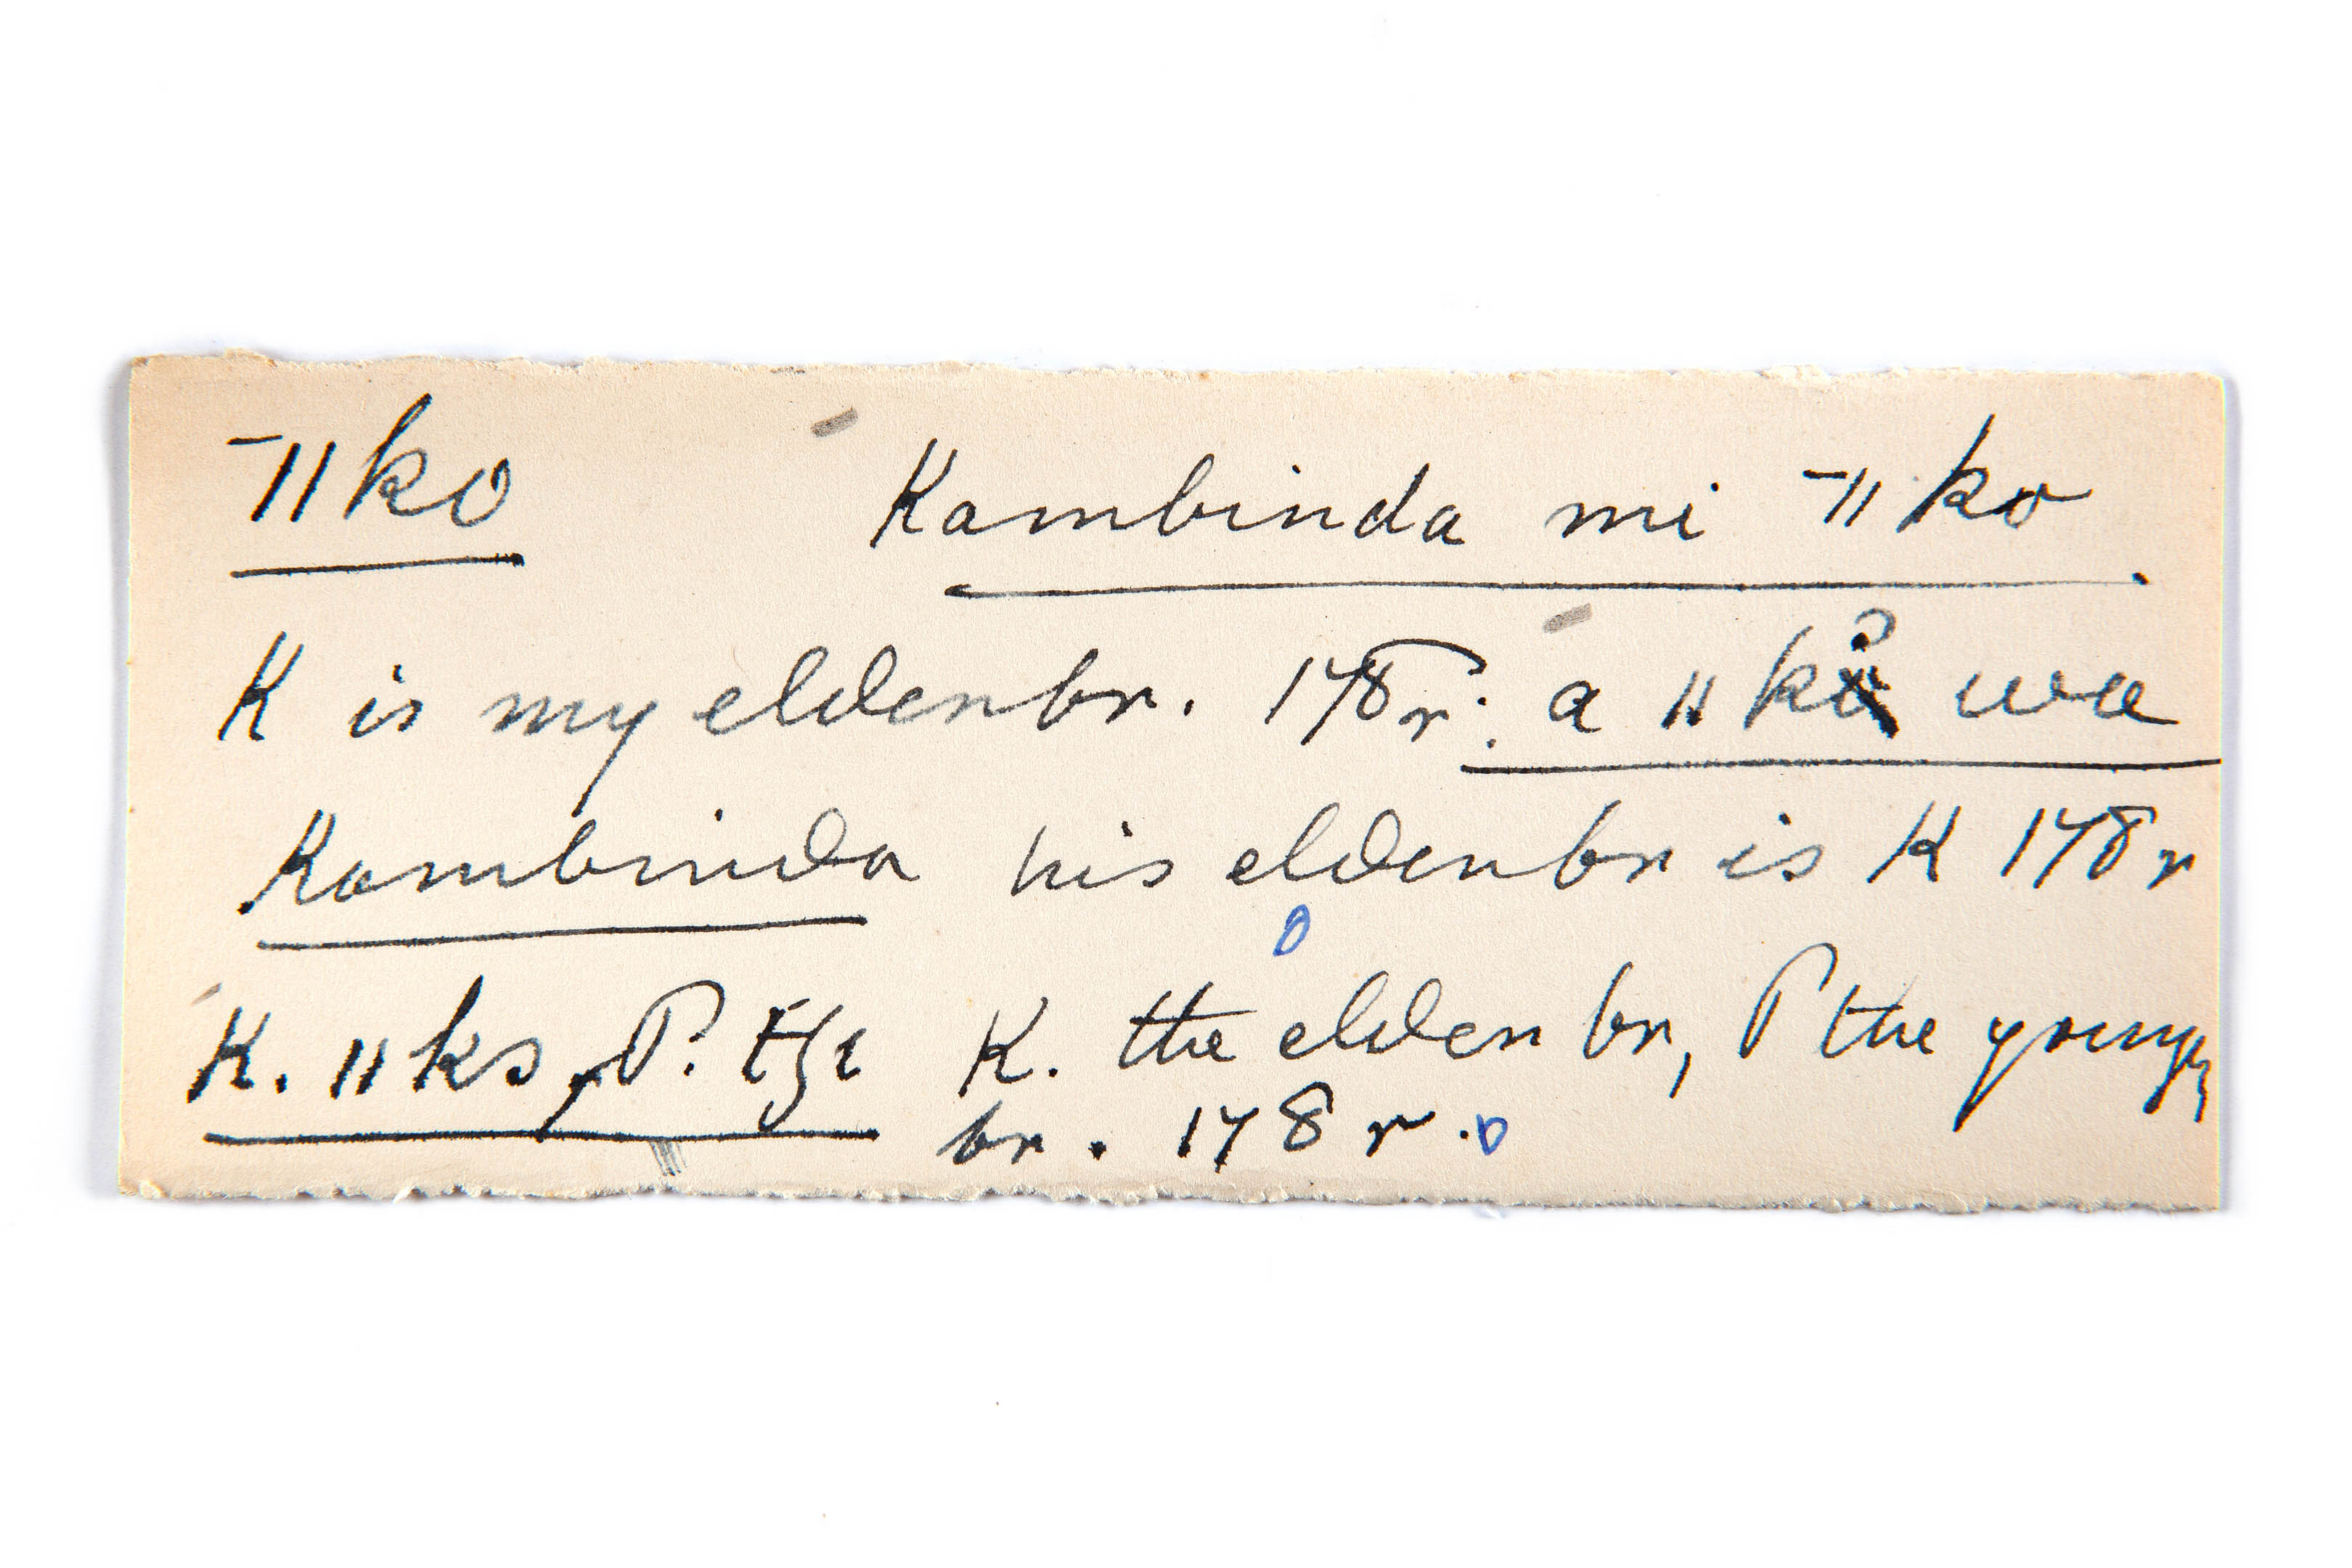 ‾ǁko Kambinda mi ‾ǁko
K is my elder br. 178r: a ǁko wa
Kambinda his elder br is K 178r
K. ǁko, P. K. the elder br, P the younger
br. 178r.